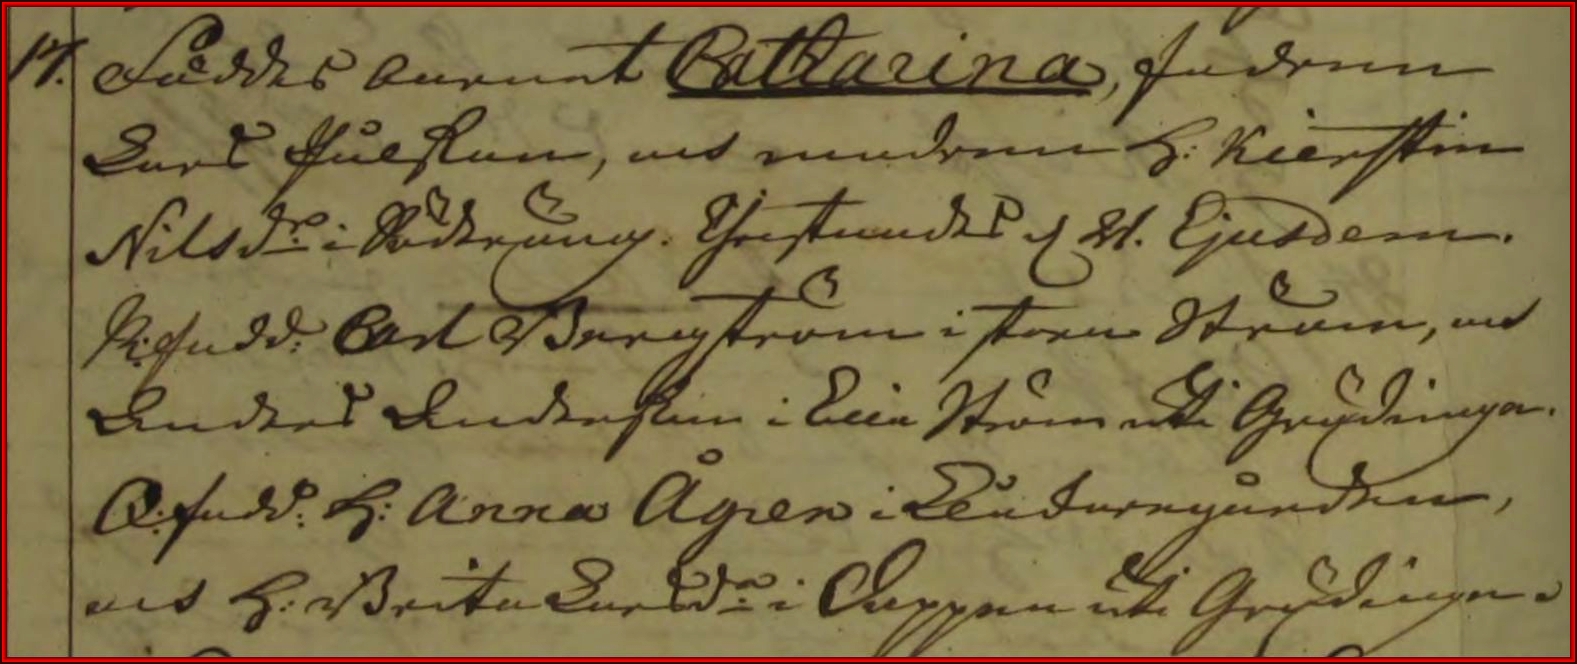 17. Föddes barnet Catharina, fadren
Lars Påhlson, och modren H: Kierstin
Nilsdr i Söderäng. Christnades d 21. Ejusdem.
M: fadd: Carl Bergström i stora Ström, och
Anders Anderson i Lilla Ström uti Grödinga.
Q: fadd: H: Anna Ågren i
och H: Brita Larsdr i uti Grödinga.